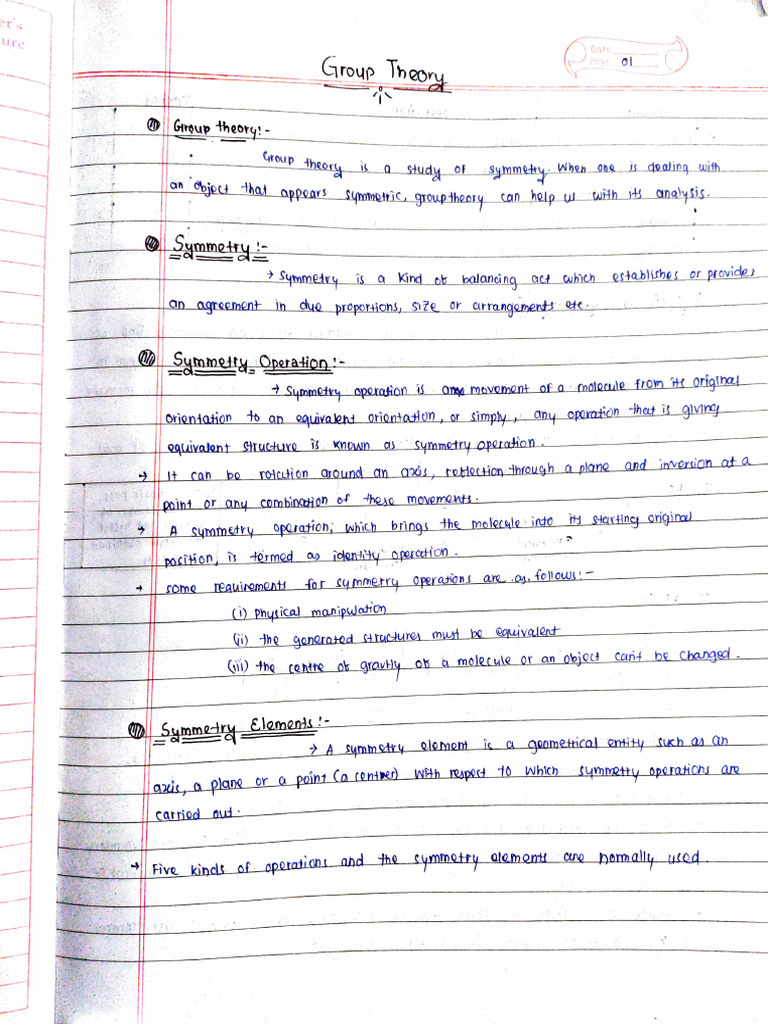 er's
ure
Group Theory
Date
Page 01
Group theory:-
Group theory is a study of symmetry. When one is dealing with
an object that appears symmetric, group theory can help us with its analysis.
Symmetry :-
→ Symmetry is a kind of balancing act which establishes or provides
an agreement in due proportions, size or arrangements etc.
Symmetry Operation :-
→ Symmetry operation is movement of a molecule from its original
orientation to an equivalent orientation, or simply, any operation that is giving
equivalent structure is known as symmetry operation.
→ It can be rotation around an axis, reflection through a plane and inversion at a
point or any combination of these movements.
→ A symmetry operation, which brings the molecule into its starting original
position, is termed as identity operation.
→ some requirements for symmetry operations are as follows:-
(i) physical manipulation
(ii) the generated structures must be equivalent
(iii) the centre of gravity of a molecule or an object can't be changed.
Symmetry Elements :-
→ A symmetry element is a geometrical entity such as an
axis, a plane or a point (a center) with respect to which symmetry operations are
carried out.
→ Five kinds of operations and the symmetry elements are normally used.